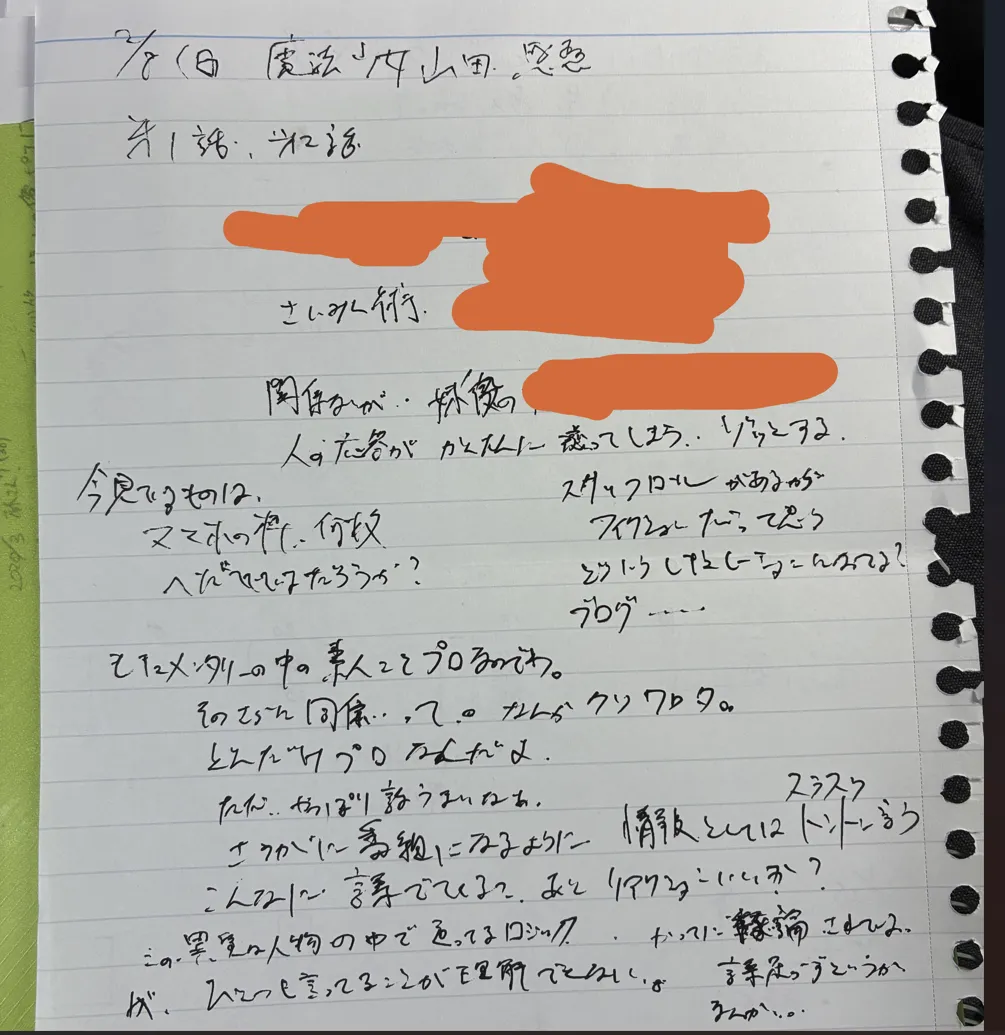 2/8(日 魔法少女山田 感想
第1話、第2話
さいみん術.
関係ないが‥ 映像の
人の応答が かんたんに 違ってしまう‥ ゾッとする.
今見てるものは、
スマホの枠‥何枚
へだてているだろうか?
スタッフロールがあるから
フィクションだって思う
どういう
ブログ……
モキュメンタリーの中の素人こそプロなのでわ。
そのさらに 関係‥って。なんか クソワロタ。
どんだけプロ なんだよ.
ただ‥やっぱり話うまいなぁ.
さすがに番組になるように
こんなに 話でてくる?、あと リアクションいいか?
スラスラ
情報としては トントン言う
この異質な人物の中で 通ってるロジック
が、ひとつも言ってることが理解できない。。
かってに されている..
話足らずというか
なんか...